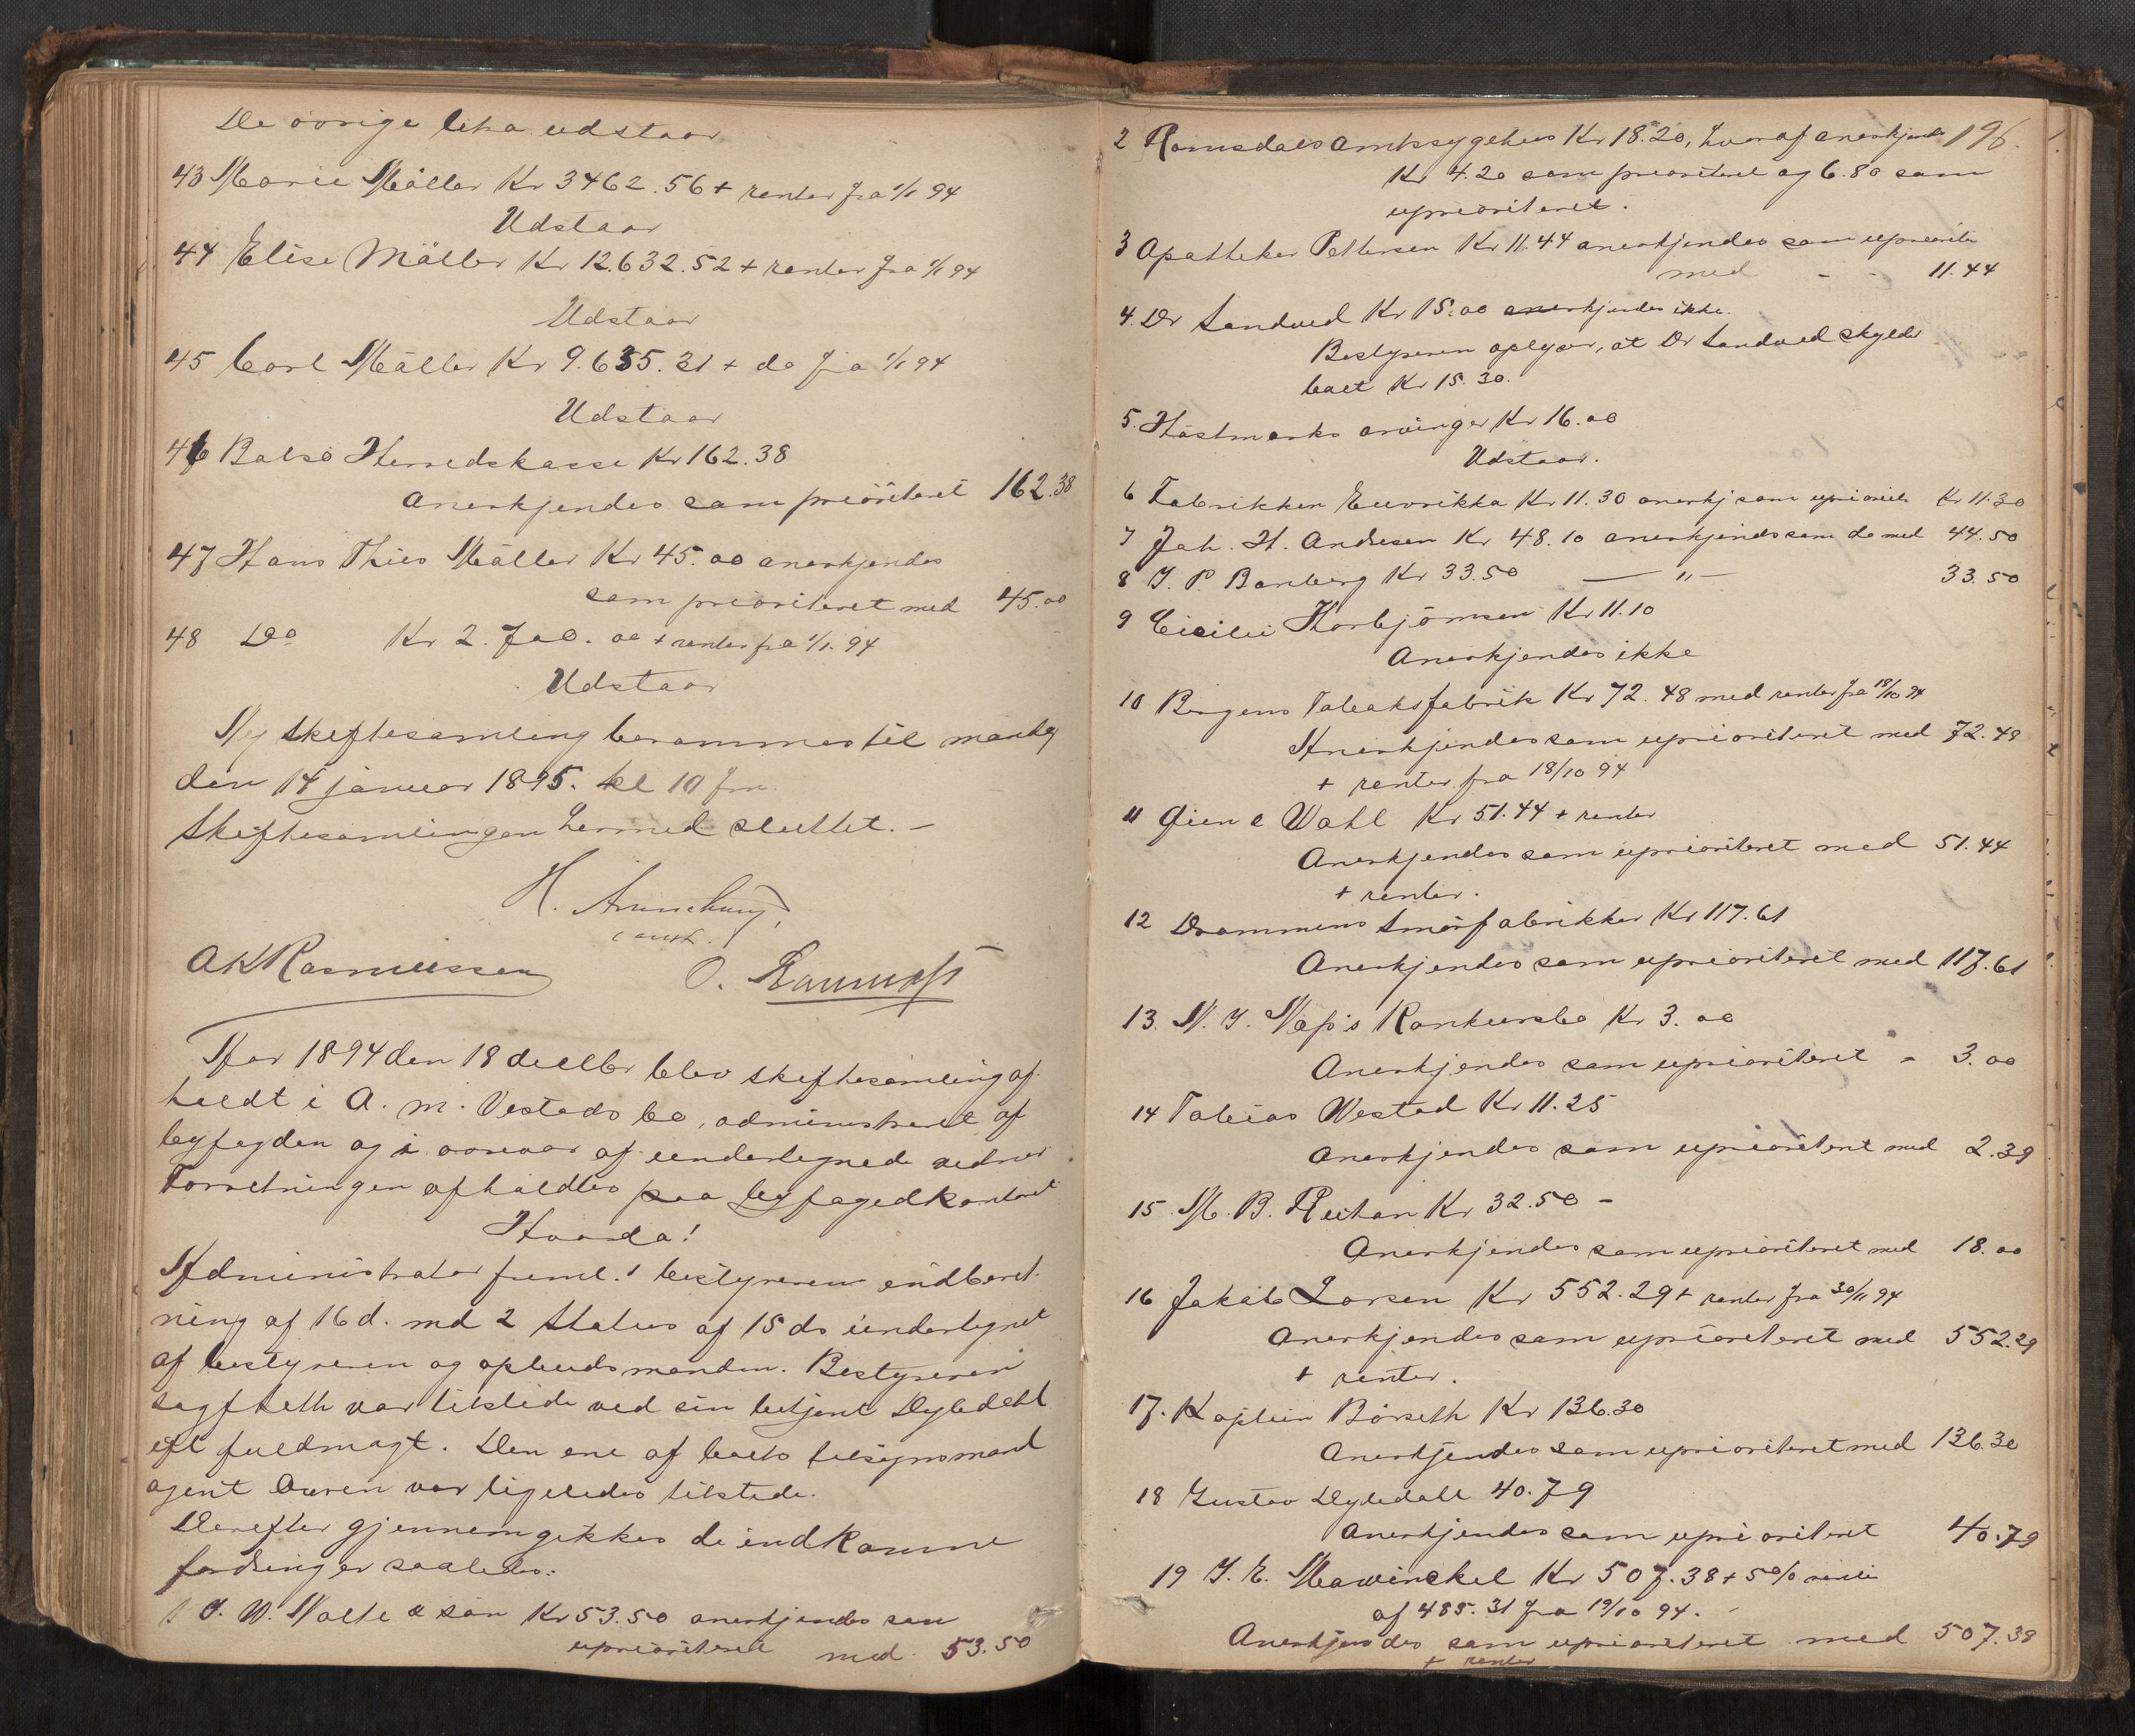 De øvrige litra udstaar
43 Marie Møller Kr 3462.56 + renter fra 1/1 94
Udstaar
44 Elise Møller Kr 12.632.52 + renter fra 1/1 94
Udstaar
45 Carl Møller Kr 9.635.31 + do fra 1/1 94
Udstaar
46 Bolsø Herredskasse Kr 162.38
Anerkjendes som prioriteret 162.38
47 Hans Thiis Møller Kr 45.00 anerkjendes
som prioriteret med 45.00
48 Do Kr 2.700.00 + renter fra 1/1 94
Udstaar
Ny skiftesamling berammes til mandag
den 14 januar 1895. kl 10 fm.
Skiftesamlingen hermed sluttet. –
H.
const.
AKRasmussen O.
Aar 1894 den 18 decbr blev skiftesamling af-
holdt i A. M. Vestads bo, administreret af
byfogden og i overvær af undertegnede vidner.
Forretningen afholdtes paa byfogedkontoret
Hvorda!
Administrator freml. 1 bestyrerens indberet-
ning af 16 d. md 2 Status af 15 ds undertegnet
af bestyreren og opbudsmanden. Bestyreren
sagf. var tilstede ved sin betjent Dybdahl
efl fuldmagt. Den ene af boets tilsynsmænd
agent Owren var ligeledes tilstede.
Derefter gjennemgikkes de indkomne
fordringer saaledes:
1 J. W. Nolte & søn Kr 53.50 anerkjendes som
uprioriteret med 53.50
196.
2 Romsdals amtssygehus Kr 18.20, hvoraf anerkjendes
Kr 4.20 som prioriteret og 6.80 som
uprioriteret.
3 Apotheker Pettersen Kr 11.44 anerkjendes som uprioriter
med - - 11.44
4. Dr Sandved Kr 15.00 anerkjendes ikke.
Bestyreren oplyser, at Dr Sandved skylder
boet Kr 15.30.
5. Høstmarks arvinger Kr 16.00
Udstaar.
6 Fabrikken Eureikka Kr 11.30 anerkj som upriorit. Kr 11.30
7 Joh. H. Andresen Kr 48.10 anerkjendes som do med 44.50
8 J. P. Bonberg Kr 33.50 — " — 33.50
9 Cicilie Thorbjørnsen Kr 11.10
Anerkjendes ikke
10 Bergens Tobaksfabrik Kr 72.48 med renter fra 18/10 94
Anerkjendes som uprioriteret med 72.48
+ renter fra 18/10 94
11 Gien & Wahl Kr 51.44 + renter
Anerkjendes som uprioriteret med 51.44
+ renter.
12 Drammens Smørfabrikker Kr 117.61
Anerkjendes som uprioriteret med 117.61
13. N. J. Næss's Konkursbo Kr 3.00
Anerkjendes som uprioriteret - 3.00
14 Tobias Westad Kr 11.25
Anerkjendes som uprioriteret med 2.39
15. M. B. Reitan Kr 32.50 –
Anerkjendes som uprioriteret med 18.00
16 Jakob Larsen Kr 552.29 + renter fra 30/11 94
Anerkjendes som uprioriteret med 552.29
+ renter.
17. Kaptein Børseth Kr 136.30
Anerkjendes som uprioriteret med 136.30
18 Gustav Dybdahl 40.79
Anerkjendes som uprioriteret 40.79
19 J. E. Mowinckel Kr 507.38 + 5% rente
af 485.31 fra 19/10 94. –
Anerkjendes som uprioriteret med 507.38
+ renter